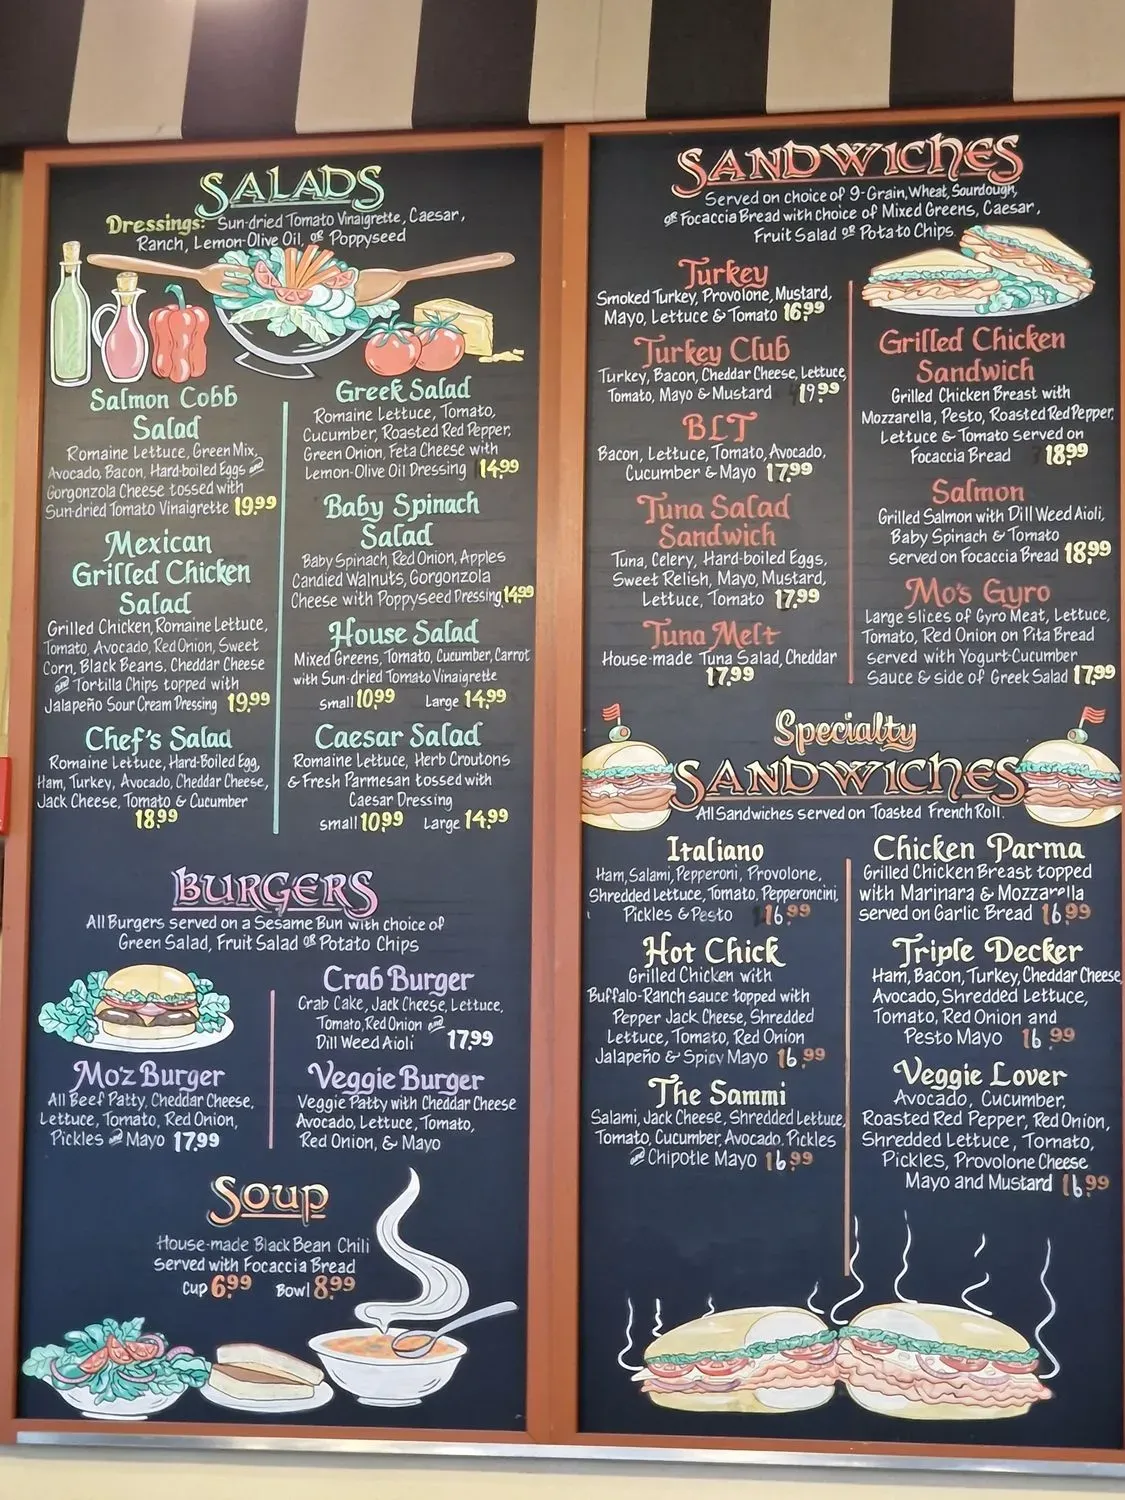 SALADS
Dressings: Sun-dried Tomato Vinaigrette, Caesar,
Ranch, Lemon-Olive Oil, OR Poppyseed
Salmon Cobb
Salad
Romaine Lettuce, Green Mix,
Avocado, Bacon, Hard-boiled Eggs and
Gorgonzola Cheese tossed with
Sun-dried Tomato Vinaigrette 19.99
Mexican
Grilled Chicken
Salad
Grilled Chicken, Romaine Lettuce,
Tomato, Avocado, Red Onion, Sweet
Corn, Black Beans, Cheddar Cheese
and Tortilla Chips topped with
Jalapeño Sour Cream Dressing 19.99
Chef's Salad
Romaine Lettuce, Hard-Boiled Egg,
Ham, Turkey, Avocado, Cheddar Cheese,
Jack Cheese, Tomato & Cucumber
18.99
Greek Salad
Romaine Lettuce, Tomato,
Cucumber, Roasted Red Pepper,
Green Onion, Feta Cheese with
Lemon-Olive Oil Dressing 14.99
Baby Spinach
Salad
Baby Spinach, Red Onion, Apples
Candied Walnuts, Gorgonzola
Cheese with Poppyseed Dressing 14.99
House Salad
Mixed Greens, Tomato, Cucumber, Carrot
with Sun-dried Tomato Vinaigrette
Small 10.99 Large 14.99
Caesar Salad
Romaine Lettuce, Herb Croutons
& Fresh Parmesan tossed with
Caesar Dressing
Small 10.99 Large 14.99
BURGERS
All Burgers served on a Sesame Bun with choice of
Green Salad, Fruit Salad OR Potato Chips
Crab Burger
Crab Cake, Jack Cheese, Lettuce,
Tomato, Red Onion and
Dill Weed Aioli 17.99
Mo'z Burger
All Beef Patty, Cheddar Cheese,
Lettuce, Tomato, Red Onion,
Pickles and Mayo 17.99
Veggie Burger
Veggie Patty with Cheddar Cheese
Avocado, Lettuce, Tomato,
Red Onion, & Mayo
Soup
House-made Black Bean Chili
served with Focaccia Bread
Cup 6.99 Bowl 8.99
SANDWICHES
Served on choice of 9-Grain, Wheat, Sourdough,
OR Focaccia Bread with choice of Mixed Greens, Caesar,
Fruit Salad OR Potato Chips.
Turkey
Smoked Turkey, Provolone, Mustard,
Mayo, Lettuce & Tomato 16.99
Turkey Club
Turkey, Bacon, Cheddar Cheese, Lettuce,
Tomato, Mayo & Mustard 19.99
BLT
Bacon, Lettuce, Tomato, Avocado,
Cucumber & Mayo 17.99
Tuna Salad
Sandwich
Tuna, Celery, Hard-boiled Eggs,
Sweet Relish, Mayo, Mustard,
Lettuce, Tomato 17.99
Tuna Melt
House-made Tuna Salad, Cheddar
17.99
Grilled Chicken
Sandwich
Grilled Chicken Breast with
Mozzarella, Pesto, Roasted Red Pepper,
Lettuce & Tomato served on
Focaccia Bread 18.99
Salmon
Grilled Salmon with Dill Weed Aioli,
Baby Spinach & Tomato
served on Focaccia Bread 18.99
Mo's Gyro
Large slices of Gyro Meat, Lettuce,
Tomato, Red Onion on Pita Bread
served with Yogurt-Cucumber
Sauce & side of Greek Salad 17.99
Specialty
SANDWICHES
All Sandwiches served on Toasted French Roll.
Italiano
Ham, Salami, Pepperoni, Provolone,
Shredded Lettuce, Tomato, Pepperoncini,
Pickles & Pesto 16.99
Hot Chick
Grilled Chicken with
Buffalo-Ranch sauce topped with
Pepper Jack Cheese, Shredded
Lettuce, Tomato, Red Onion
Jalapeño & Spicy Mayo 16.99
The Sammi
Salami, Jack Cheese, Shredded Lettuce,
Tomato, Cucumber, Avocado, Pickles
and Chipotle Mayo 16.99
Chicken Parma
Grilled Chicken Breast topped
with Marinara & Mozzarella
served on Garlic Bread 16.99
Triple Decker
Ham, Bacon, Turkey, Cheddar Cheese,
Avocado, Shredded Lettuce,
Tomato, Red Onion and
Pesto Mayo 16.99
Veggie Lover
Avocado, Cucumber,
Roasted Red Pepper, Red Onion,
Shredded Lettuce, Tomato,
Pickles, Provolone Cheese
Mayo and Mustard 16.99